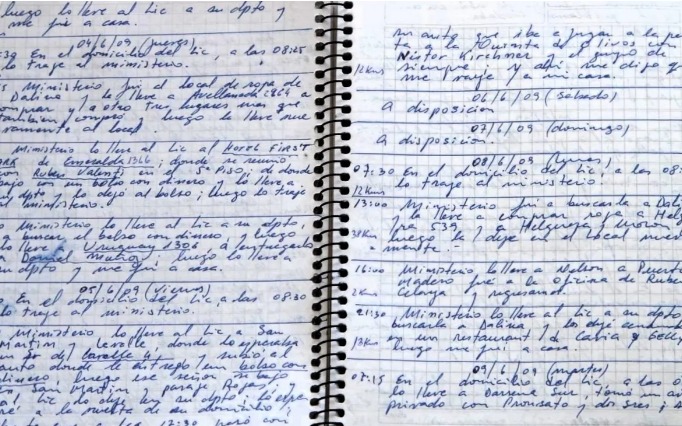 luego lo lleve al Lic a su dpto y
me fui a casa.
04/6/09 (jueves)
:30 En el domicilio del Lic, a las 08:25
lo traje al ministerio.
Ministerio fui al local de ropa de
Dalina y la lleve a Avellaneda
comprar y a otro tres lugares mas que
tambien compró y luego la lleve nue
vamente al local.
Ministerio lo lleve al Lic al HOTEL FIRST
PARK de Esmeralda 1366, donde se reunió
con Ruben Valenti en el 5º PISO; de donde
bajo con un bolso con dinero y lo lleve a
su dpto y dejó al bolso; luego lo traje
al ministerio.
Ministerio lo lleve al Lic a su dpto,
buscar el bolso con dinero y luego
lo lleve a Uruguay 1306, a entregarlo
a Daniel Muñoz; luego lo lleve a
su dpto y me fui a casa.
05/6/09 (viernes)
En el domicilio del Lic a las 08:30
lo traje al ministerio.
Ministerio lo lleve al Lic a San
Martin y Lavalle donde lo esperaba
y subió al
auto donde le entregó un bolso con
dinero,
San Martin, pasaje Rojas, y
al Lic lo deje en su dpto; lo espe
ré a la vuelta de su domicilio;
12:30 paró con
su auto que iba a jugar a la pelo
ta a la Quinta de Olivos con
Nestor Kirchner como
siempre y ahi me dijo que
12Kms me vaya a mi casa.
06/6/09 (sabado)
A disposición
07/6/09 (domingo)
A disposición.
08/6/09 (lunes)
07:30 En el domicilio del Lic, a las 08:
12Kms lo traje al ministerio.
13:00 Ministerio fui a buscarla a Dali
y la lleve a comprar ropa a Helg
539 y a Helguera y Moron
38Km luego la deje en el local nueva
mente.-
16:00 Ministerio lo lleve a Nelson a Puerto
Madero fue a la oficina de Ruben
2Kms Celaya y regresamos
21:30 Ministerio lo lleve al Lic a su dpto
buscarla a Dalina y los deje cenando
13Km en un restaurant de Cavia y
luego me fui a casa.
09/6/09 (martes)
07:15 En el domicilio del Lic, a las
lo lleve a Barrena Sur, tomó un avi
privado con Pronsato y dos sres;